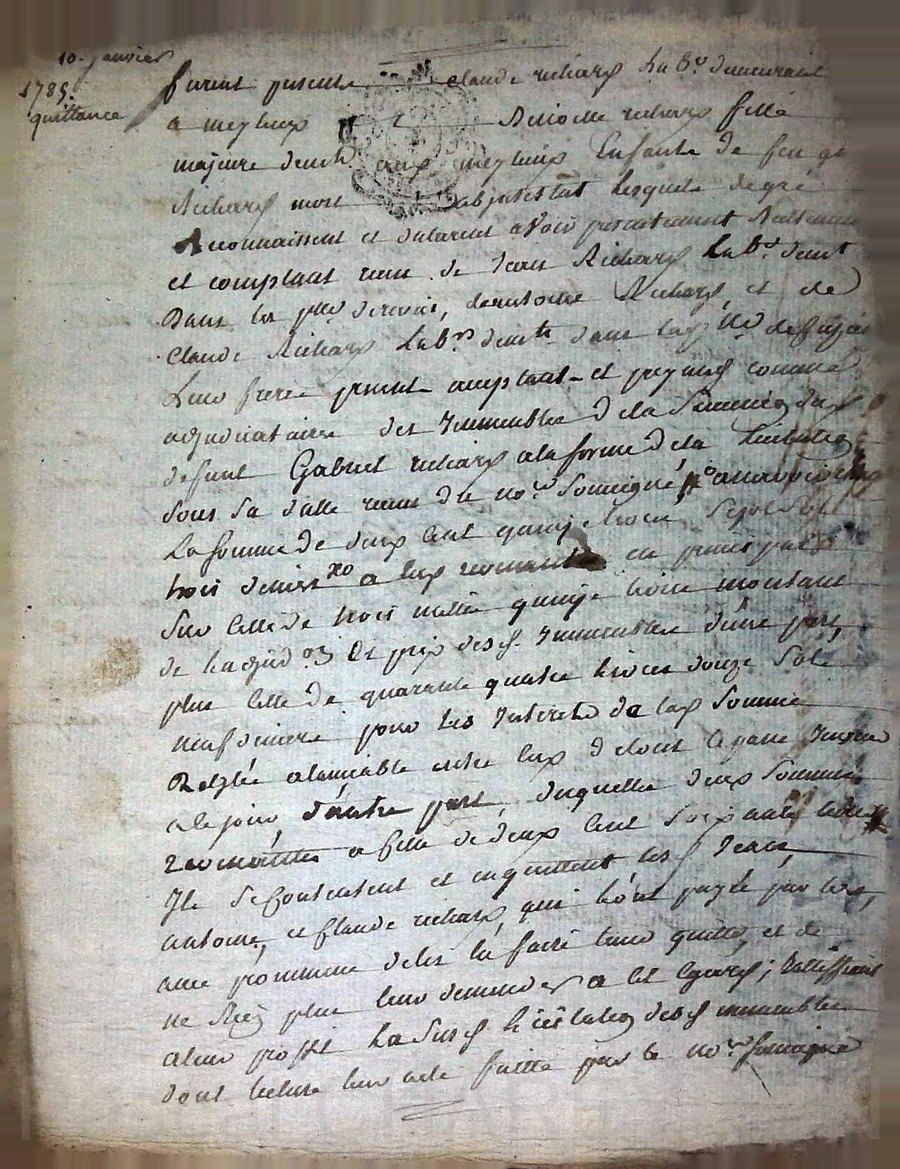 10. janvier
1785.
quittance
furent présents claude richard Lab.r demeurant
a meylieux Benoite richard fille
majeure demt aud meylieux Enfants de feu ga
Richard mort abjntestat lesquels de gré
Reconnaissent et declarent avoir presentement
et comptant recu de Jean Richard Lab.r demt
Dans la p.sse de antoine Richard, et de
Claude Richard Lab.rs demts dans lad p.sse
Leurs freres present acceptant et payants comme
adjudicataires des Immeubles de la dud
deffunt Gabriel richard a la forme de la licitation
sous sa datte recue du no.re soussigné
La somme de deux cent quinze livres sept sols
trois deniers a eux revenante en principal
sur celle de trois mille quinze livres montant
de et prix desd. Immeubles d'une part,
plus celle de quarante quatre livres douze sols
neuf deniers pour les Interets de lad somme
Reglée alamiable entre eux
a ce jour d'autre part, desquelles deux sommes
revenantes a celle de deux cent soixante livres
Ils se contentent et en quittent lesd Jean,
antoine, et Claude richard, qui l'ont payée par
avec promesse de les en faire tenir quittes, et de
ne Rien plus leur demander a cet egard;
aleur proffit La susd licitation desd immeubles
dont lecture leur a été faitte par le no.re soussigné